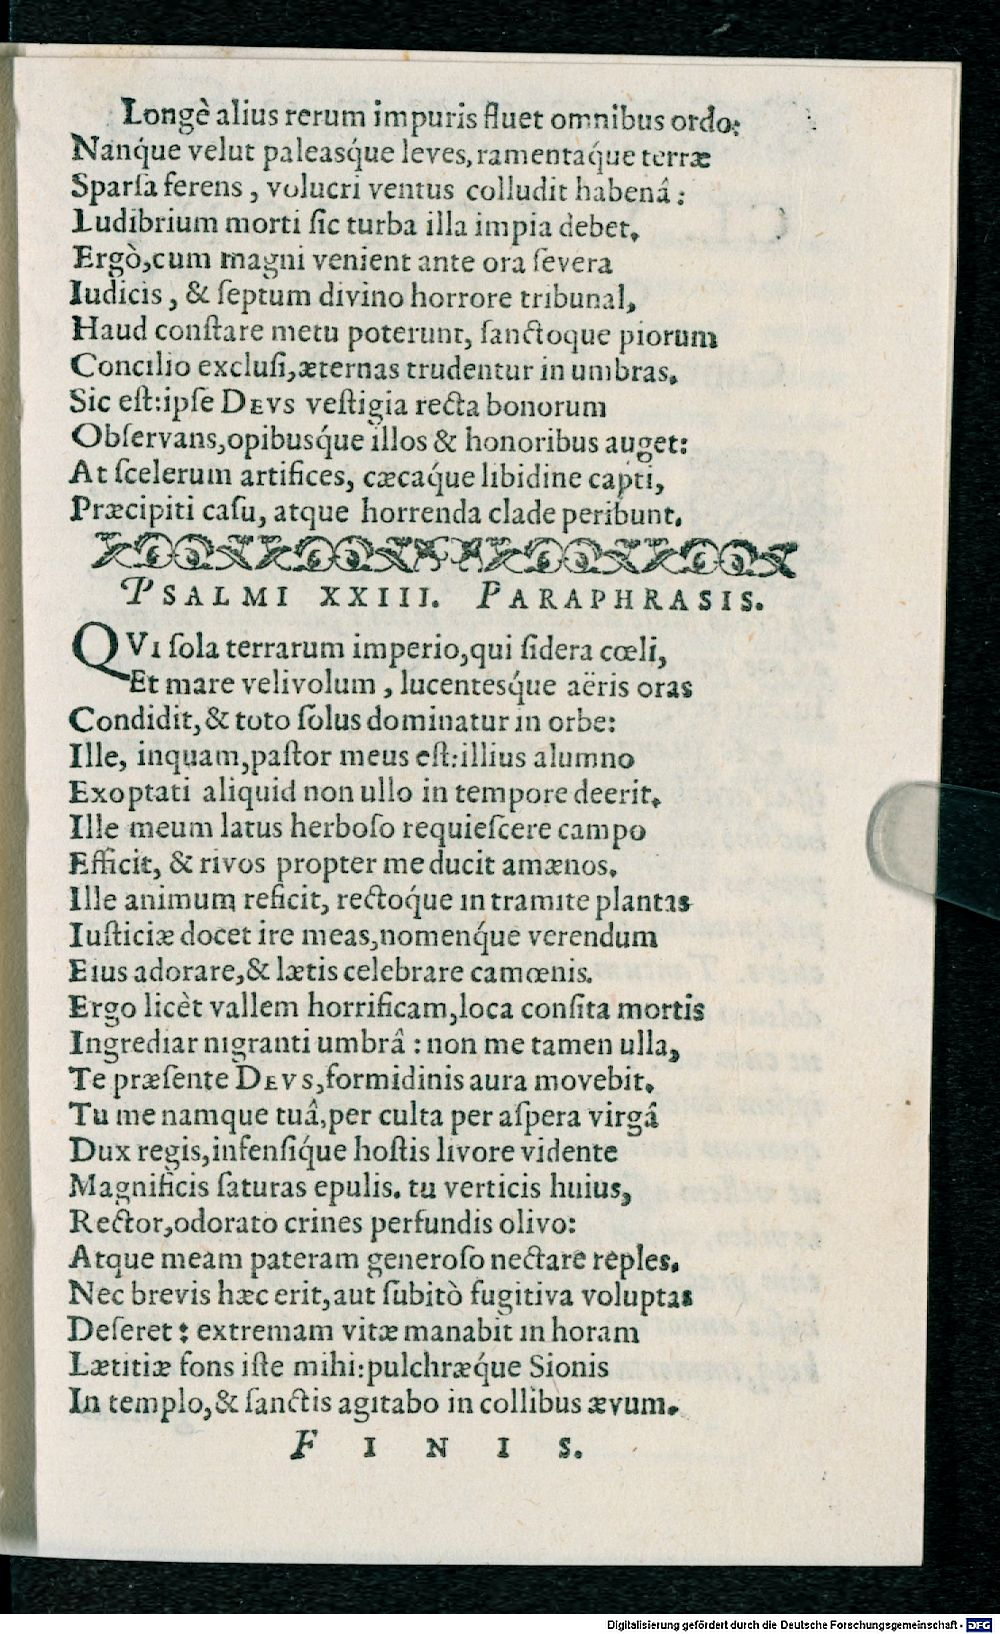 Longè alius rerum impuris fluet omnibus ordo:
Nanq́ue velut paleasq́ue leves, ramentaq́ue terræ
Sparſa ferens, volucri ventus colludit habenâ:
Ludibrium morti ſic turba illa impia debet.
Ergò, cum magni venient ante ora ſevera
Iudicis, & ſeptum divino horrore tribunal,
Haud conſtare metu poterunt, ſanctoque piorum
Concilio excluſi, æternas trudentur in umbras.
Sic eſt: ipſe DEVS veſtigia recta bonorum
Obſervans, opibusq́ue illos & honoribus auget:
At ſcelerum artifices, cæcaq́ue libidine capti,
Præcipiti caſu, atque horrenda clade peribunt.
PSALMI XXIII. PARAPHRASIS.
QVI ſola terrarum imperio, qui ſidera cœli,
Et mare velivolum, lucentesq́ue aëris oras
Condidit, & toto ſolus dominatur in orbe:
Ille, inquam, paſtor meus eſt: illius alumno
Exoptati aliquid non ullo in tempore deerit.
Ille meum latus herboſo requieſcere campo
Efficit, & rivos propter me ducit amænos.
Ille animum reficit, rectoq́ue in tramite plantas
Iuſticiæ docet ire meas, nomenq́ue verendum
Eius adorare, & lætis celebrare camœnis.
Ergo licèt vallem horrificam, loca conſita mortis
Ingrediar nigranti umbrâ: non me tamen ulla,
Te præſente DEVS, formidinis aura movebit.
Tu me namque tuâ, per culta per aſpera virgâ
Dux regis, infenſiq́ue hoſtis livore vidente
Magnificis ſaturas epulis. tu verticis huius,
Rector, odorato crines perfundis olivo:
Atque meam pateram generoſo nectare reples.
Nec brevis hæc erit, aut ſubitò fugitiva voluptas
Deſeret: extremam vitæ manabit in horam
Lætitiæ fons iſte mihi: pulchræq́ue Sionis
In templo, & ſanctis agitabo in collibus ævum.
FINIS.
Digitalisierung gefördert durch die Deutsche Forschungsgemeinschaft - DFG